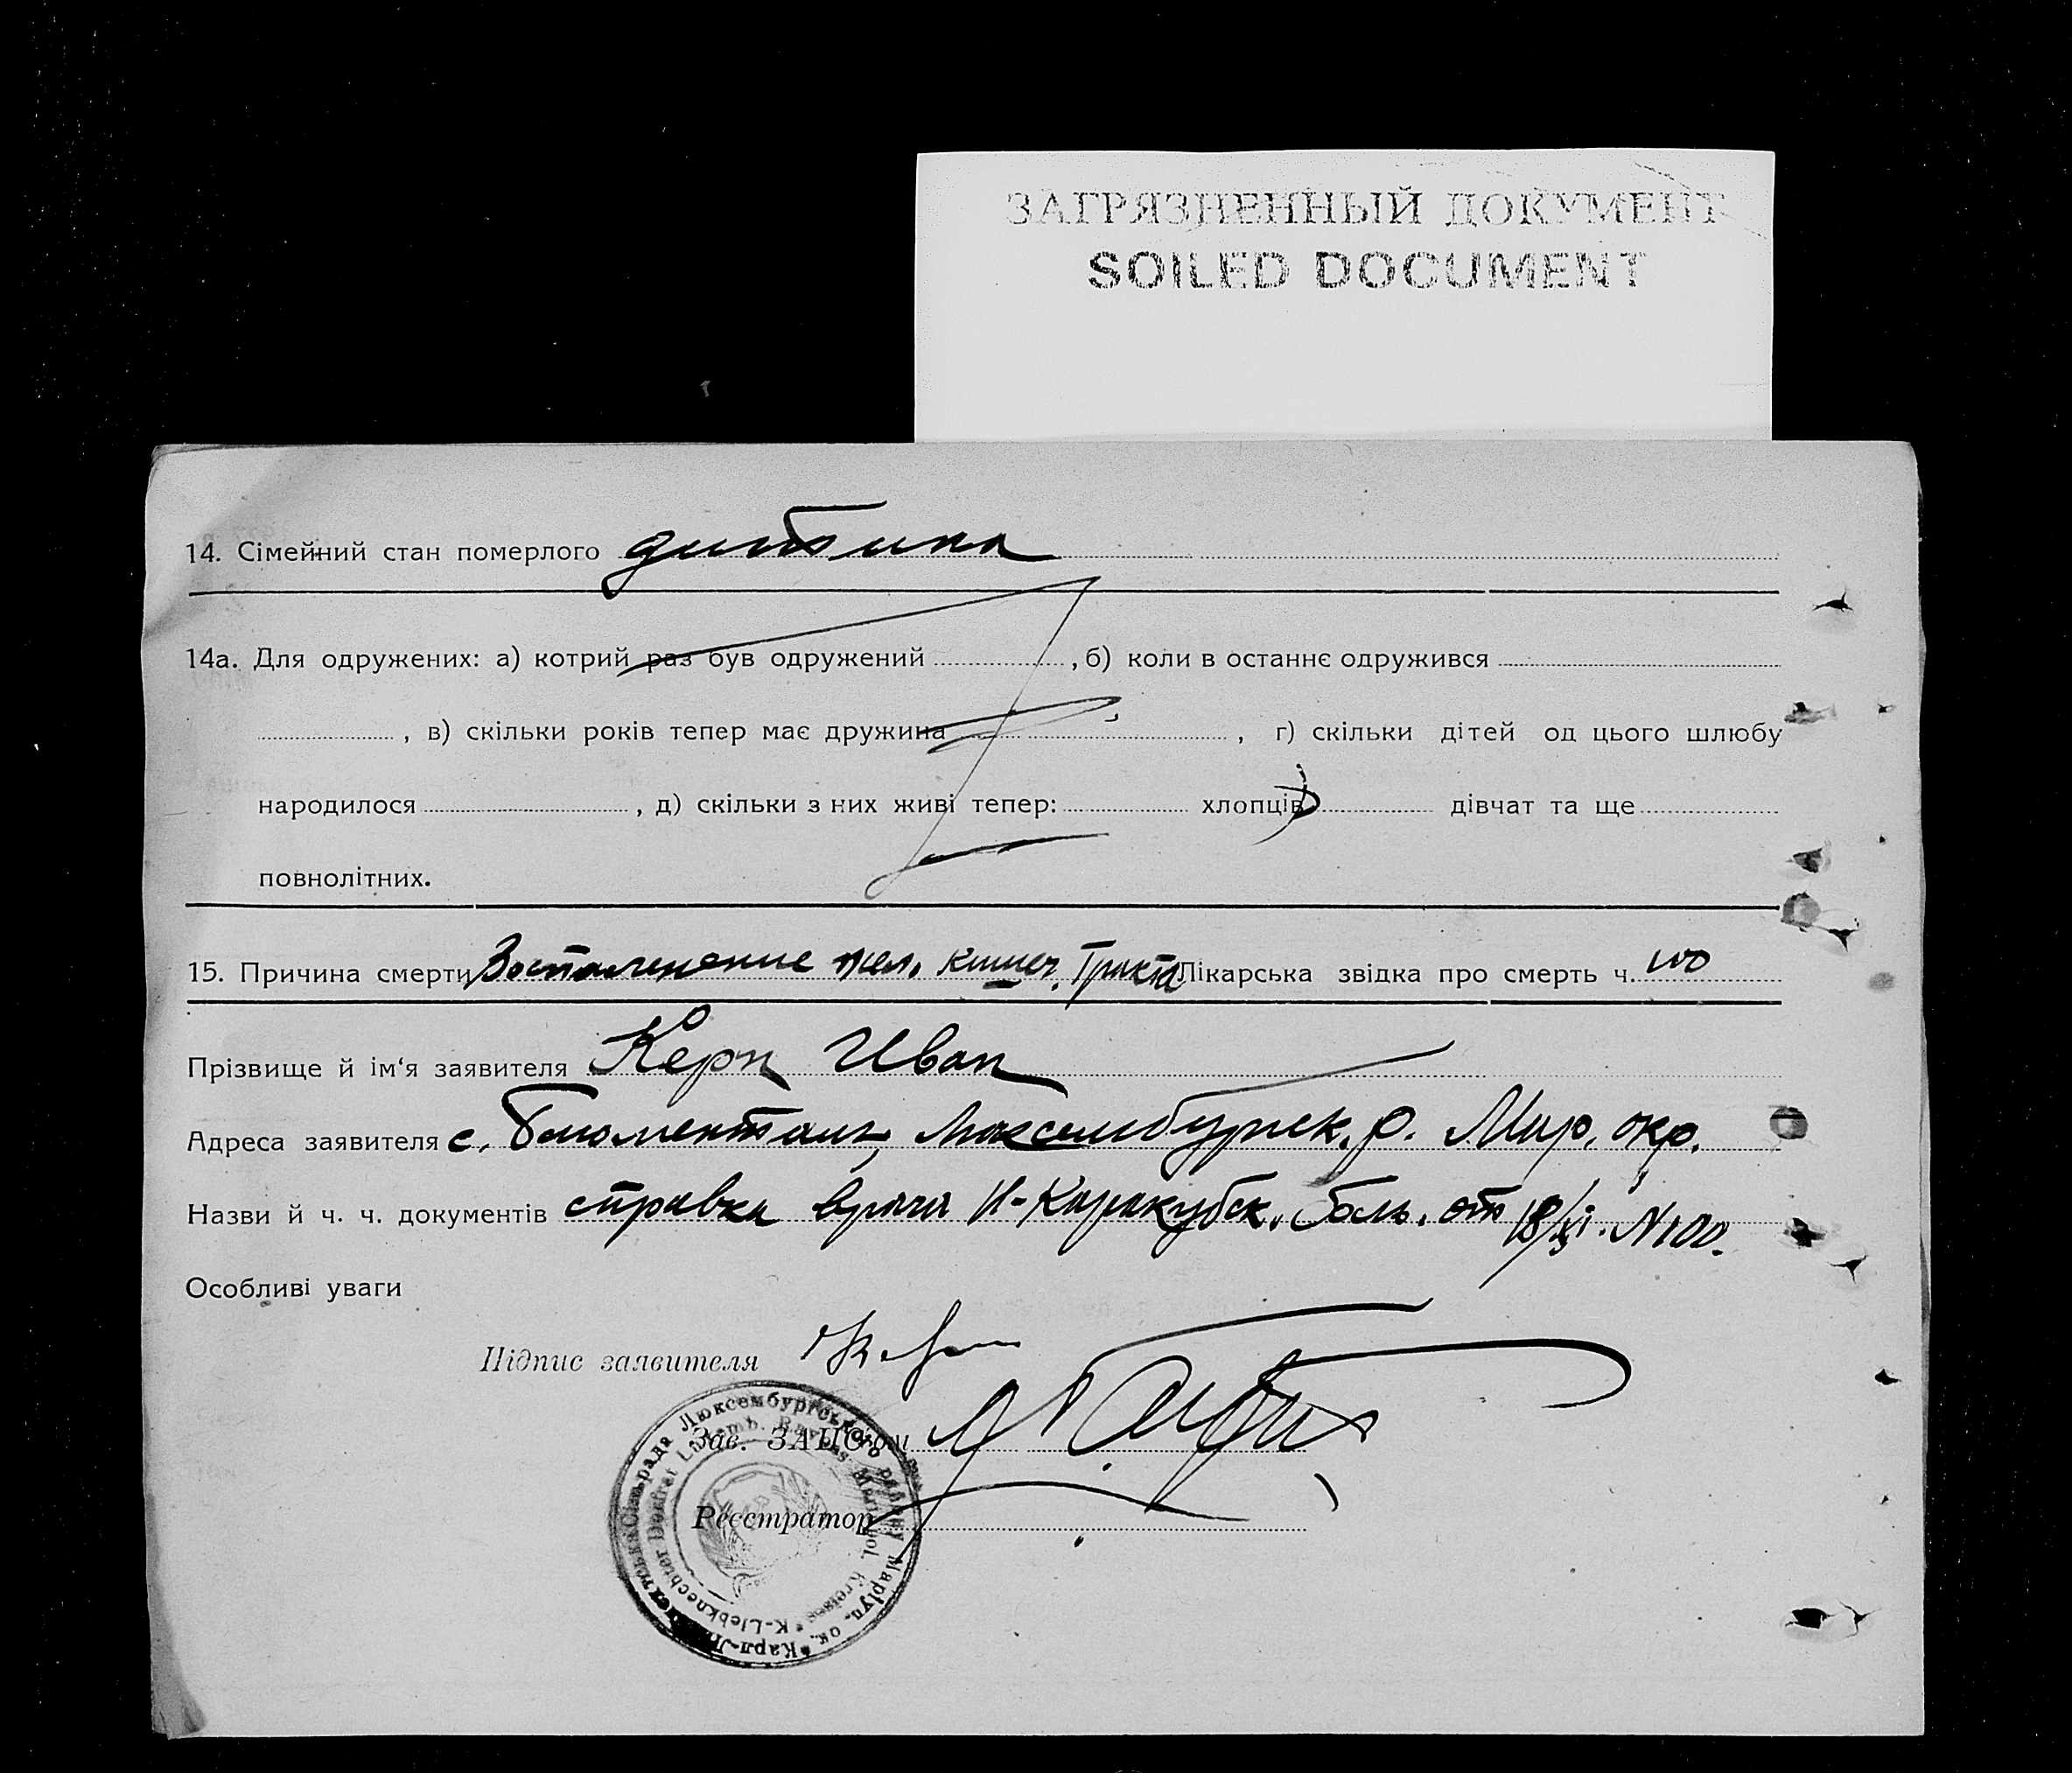 ЗАГРЯЗНЕННЫЙ ДОКУМЕНТ
SOILED DOCUMENT
14. Сімейний стан померлого дитина
14а. Для одружених: а) котрий раз був одружений , б) коли в останнє одружився
, в) скільки років тепер має дружина , г) скільки дітей од цього шлюбу
народилося , д) скільки з них живі тепер: хлопців дівчат та ще
повнолітних.
15. Причина смерти Воспаление жел. кишеч. тракта Лікарська звідка про смерть ч. 100
Прізвище й ім'я заявителя Керн Иван
Адреса заявителя с. Блюменталь, Люксембургск. р. Мар. окр.
Назви й ч. ч. документів справка врача Н-Каракубск. боль. от 18/XI. N100.
Особливі уваги
Підпис заявителя Керн
Зав. ЗАПСом
Реєстратор
рада Люксембургського району Маріуп. ок. * Карл-Лібкнехтівська Сільрада
K-Liebknechter Dorfrat Luxemb. Rayons Mariupol. Kreises *